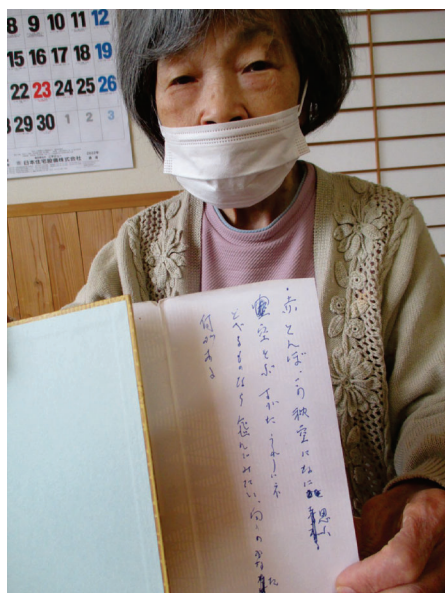 8 9 10 11 12
15 16 17 18 19
22 23 24 25 26
29 30 1 2 3
株式会社
・赤とんぼ、この秋空になに思ふ
空とぶすがたうれしいネ
とべるものなら飛んでみたい、向この
何がある